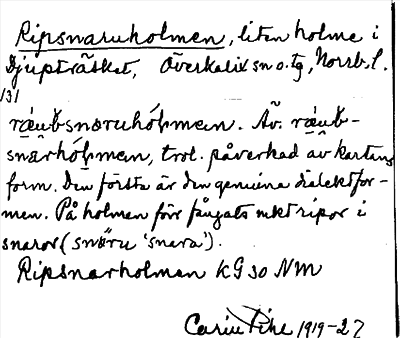 Ripsnaruholmen, liten holme i
Djupträsket, Överkalix sn o. tg, Norrb. l.
131
snaruhólmen. Äv.
snarhólmen, trol. påverkad av kartans
form. Den första är den genuina dialektfor-
men. På holmen förr fångats mkt ripor i
snaror (snöru 'snara').
Ripsnarholmen KG 30 NM
Carin Pihl 1919-27